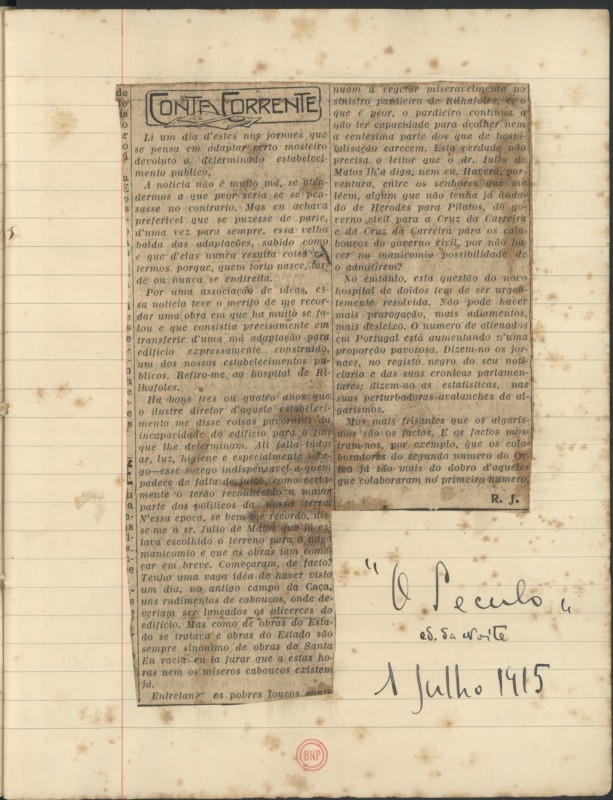 CONTA CORRENTE
Li um dia d'estes nos jornaes que
se pensa em adaptar certo mosteiro
devoluto a determinado estabeleci-
mento publico.
A noticia não é muito má, se aten-
dermos a que peor seria se se pen-
sasse no contrario. Mas eu achava
preferivel que se puzesse de parte,
d'uma vez para sempre, essa velha
balda das adaptações, sabido como
é que d'elas nunca resulta coisa
termos, porque, quem torto nasce, tar-
de ou nunca se endireita.
Por uma associação de ideas, es-
sa noticia teve o merito de me recor-
dar uma obra em que ha muito se fa-
lou e que consistia precisamente em
transferir d'uma má adaptação para
edificio expressamente construido,
um dos nossos estabelecimentos pu-
blicos. Refiro-me ao hospital de Ri-
lhafoles.
Ha bons tres ou quatro anos que
o ilustre diretor d'aquele estabeleci-
mento me disse coisas pavorosas da
incapacidade do edificio para o fim
que lhe determinam. Ali falta tudo:
ar, luz, higiene e especialmente soce-
go—esse socego indispensavel a quem
padece de falta de juizo, como certa-
mente o terão reconhecido a maior
parte dos politicos da nossa terra.
N'essa epoca, se bem me recordo, dis-
se-me o sr. Julio de Matos que já es-
tava escolhido o terreno para o novo
manicomio e que as obras iam come-
çar em breve. Começaram, de facto?
Tenho uma vaga idéa de haver visto
um dia, no antigo campo da Caça,
uns rudimentos de cabouços, onde de-
veriam ser lançados os alicerces do
edificio. Mas como de obras do Esta-
do se tratava e obras do Estado são
sempre sinónimo de obras de Santa
En racia eu ia jurar que a estas ho-
ras nem os miseros caboucos existem
já.
Entretanto os pobres loucos conti-
nuam a vegetar miseravelmente no
sinistro pardieiro de Rilhafoles, e, o
que é peor, o pardieiro continua a
não ter capacidade para acolher nem
a centesima parte dos que de hospi-
talisação carecem. Esta verdade não
precisa o leitor que o dr. Julio de
Matos lh'a diga, nem eu. Haverá, por-
ventura, entre os senhores que me
lêem, algum que não tenha já anda-
do de Herodes para Pilatos, do go-
verno civil para a Cruz da Carreira
e da Cruz da Carreira para os cala-
bouços do governo civil, por não ha-
ver no manicomio possibilidade de
o admitirem?
No entanto, esta questão do novo
hospital de doidos tem de ser urgen-
temente resolvida. Não pode haver
mais prorogação, mais adiamentos,
mais desleixo. O numero de alienados
em Portugal está aumentando n'uma
proporção pavorosa. Dizem-no os jor-
naes, no registo negro do seu noti-
ciario e das suas cronicas parlamen-
tares; dizem-no as estatisticas, nas
suas perturbadoras avalanches de al-
garismos.
Mas mais frisantes que os algaris-
mos são os factos. E os factos mos-
tram-nos, por exemplo, que os cola-
boradores do segundo numero do Or-
feu já são mais do dobro d'aqueles
que colaboraram no primeiro numero.
R. J.
"O Seculo"
ed. da Noite
1 Julho 1915
BNP